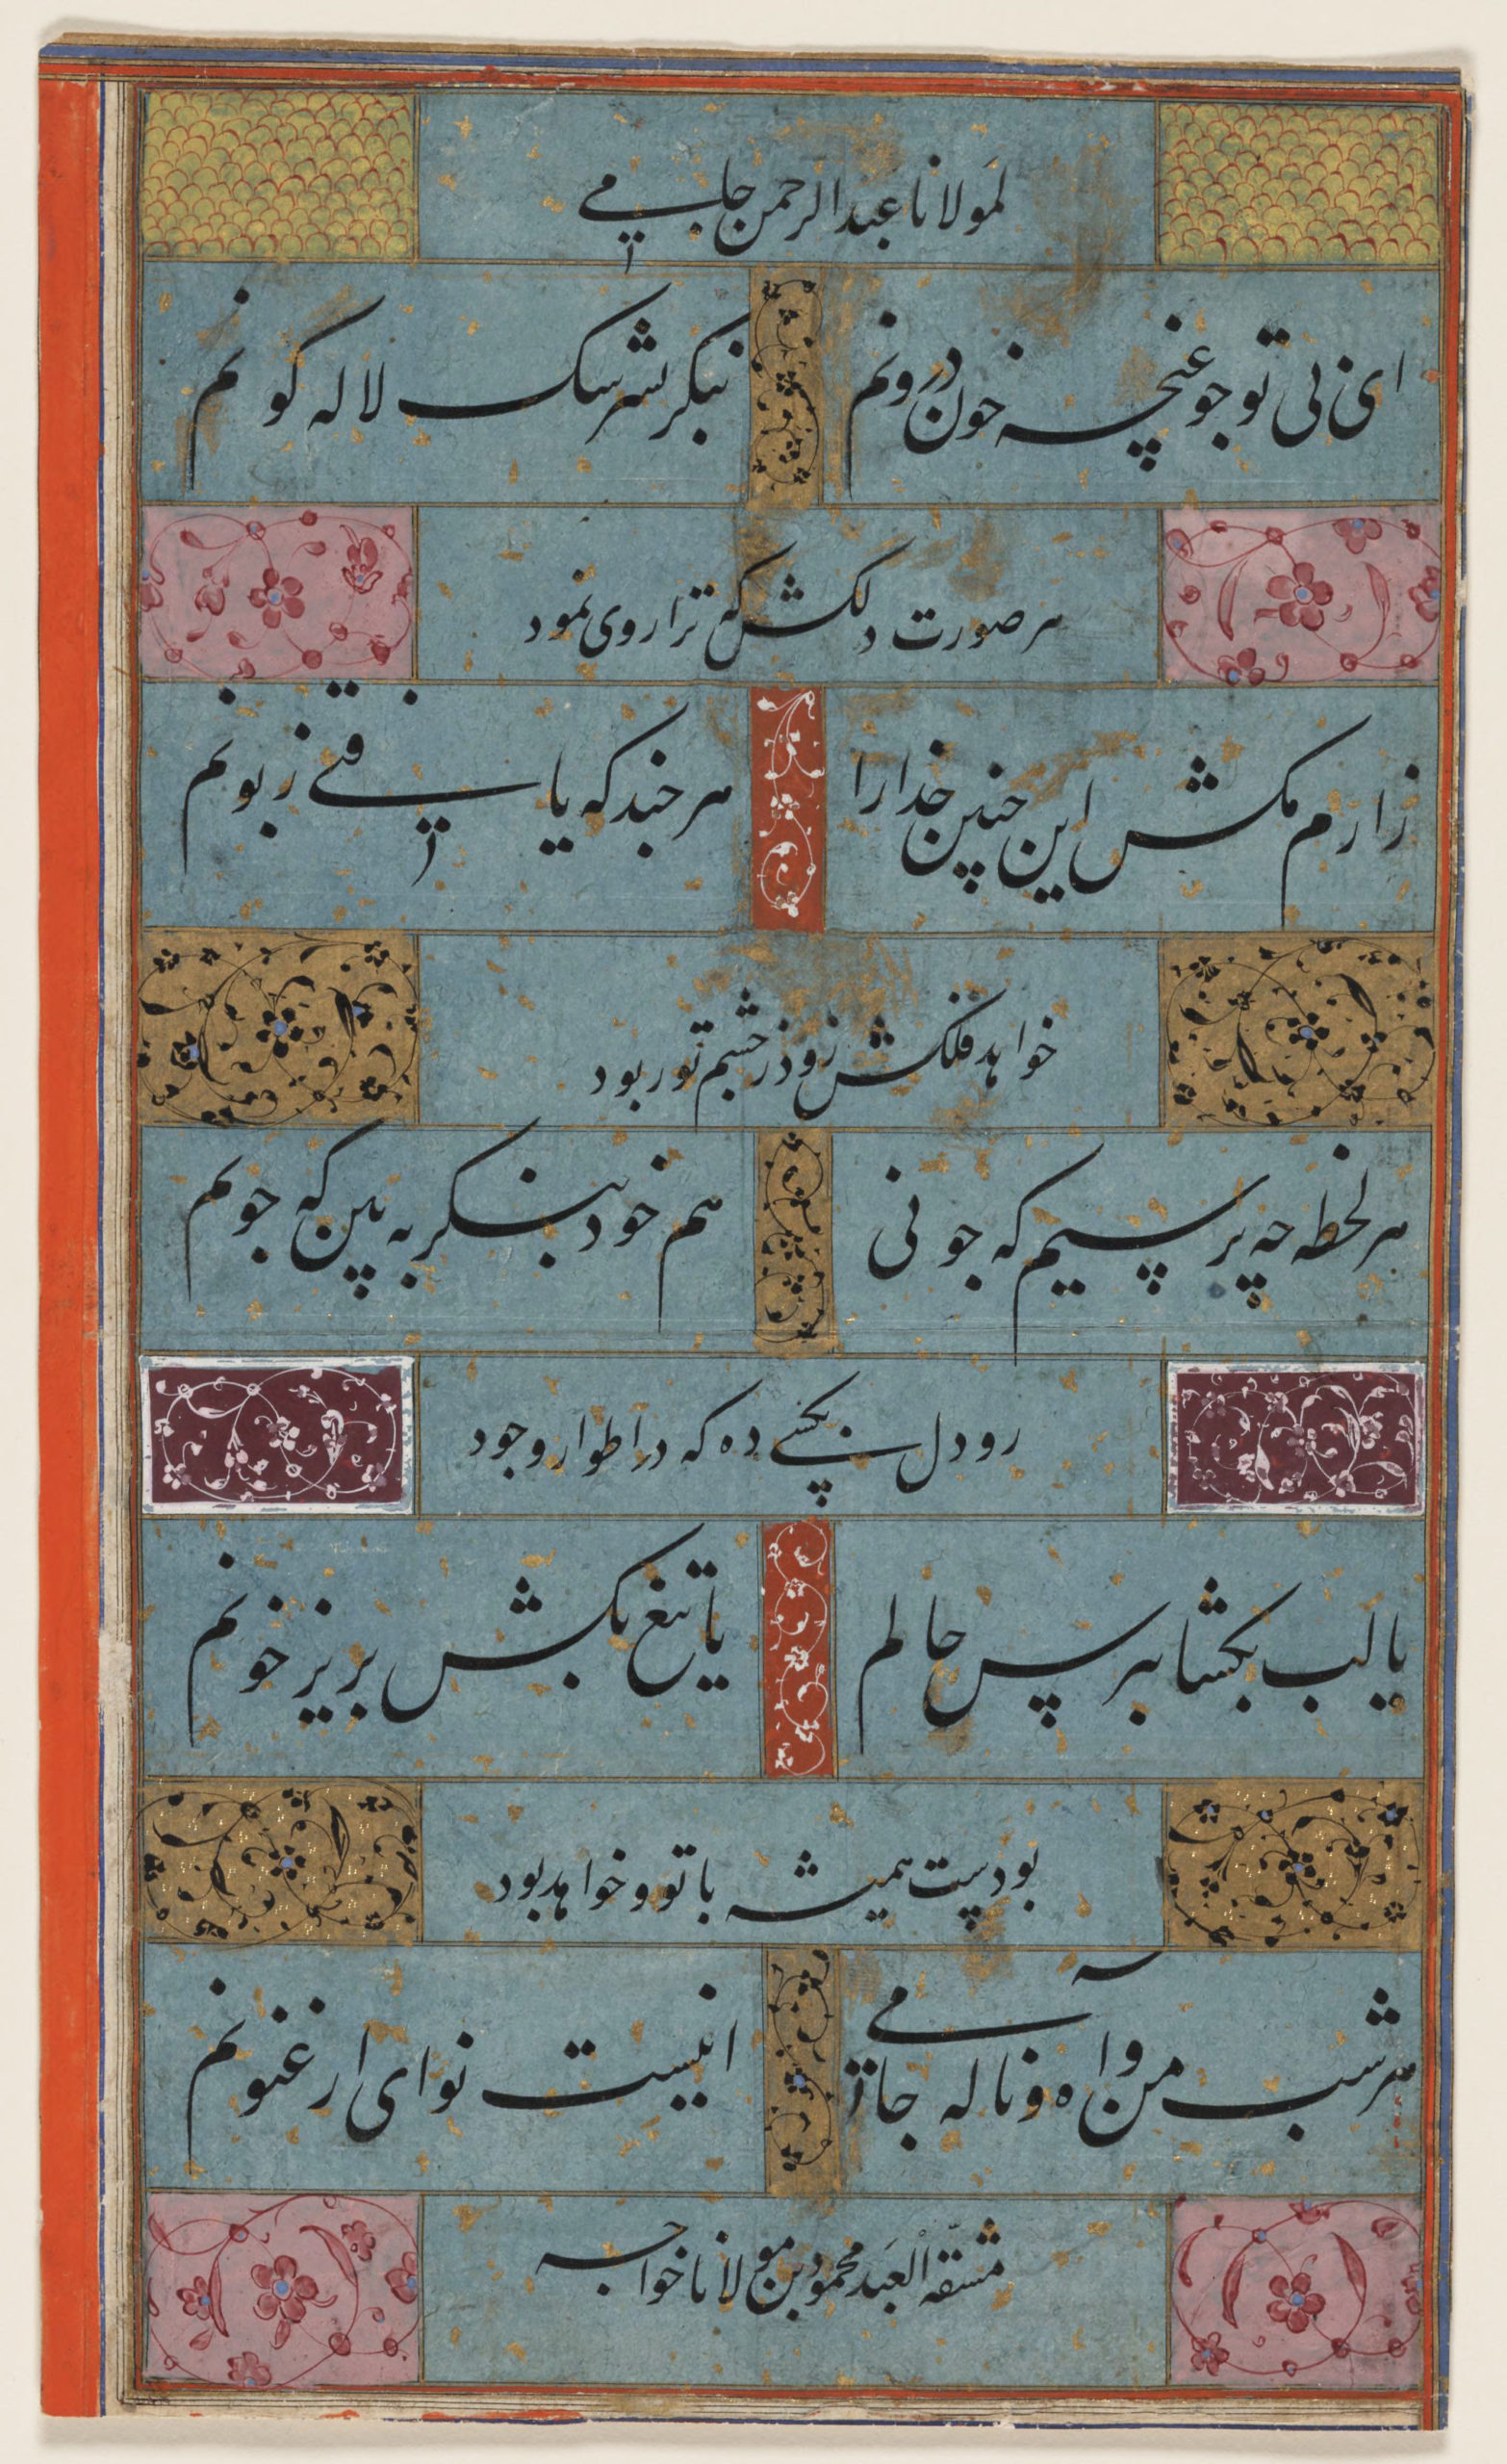 لمولانا عبدالرحمن جامی
ای بی تو جو غنچه خون درونم
بنکر بسرشک لاله کونم
هر صورت دلکش که ترا روی نمود
زارم مکش این چنین خدارا
هر چند که یافتی زبونم
خواهد فلکش زود ز چشم تو ربود
هر لحظه چه پرسیم که چونی
هم خود بنکر به بین که چونم
رو دل بکسی ده که در اطوار وجود
یا لب بکشا بپرس حالم
یا تیغ بکش بریز خونم
بودست همیشه با تو و خواهد بود
هر شب من و آه و ناله جامی
اینست نوای ارغنونم
مشقه العبد محمود بن مولانا خواجه